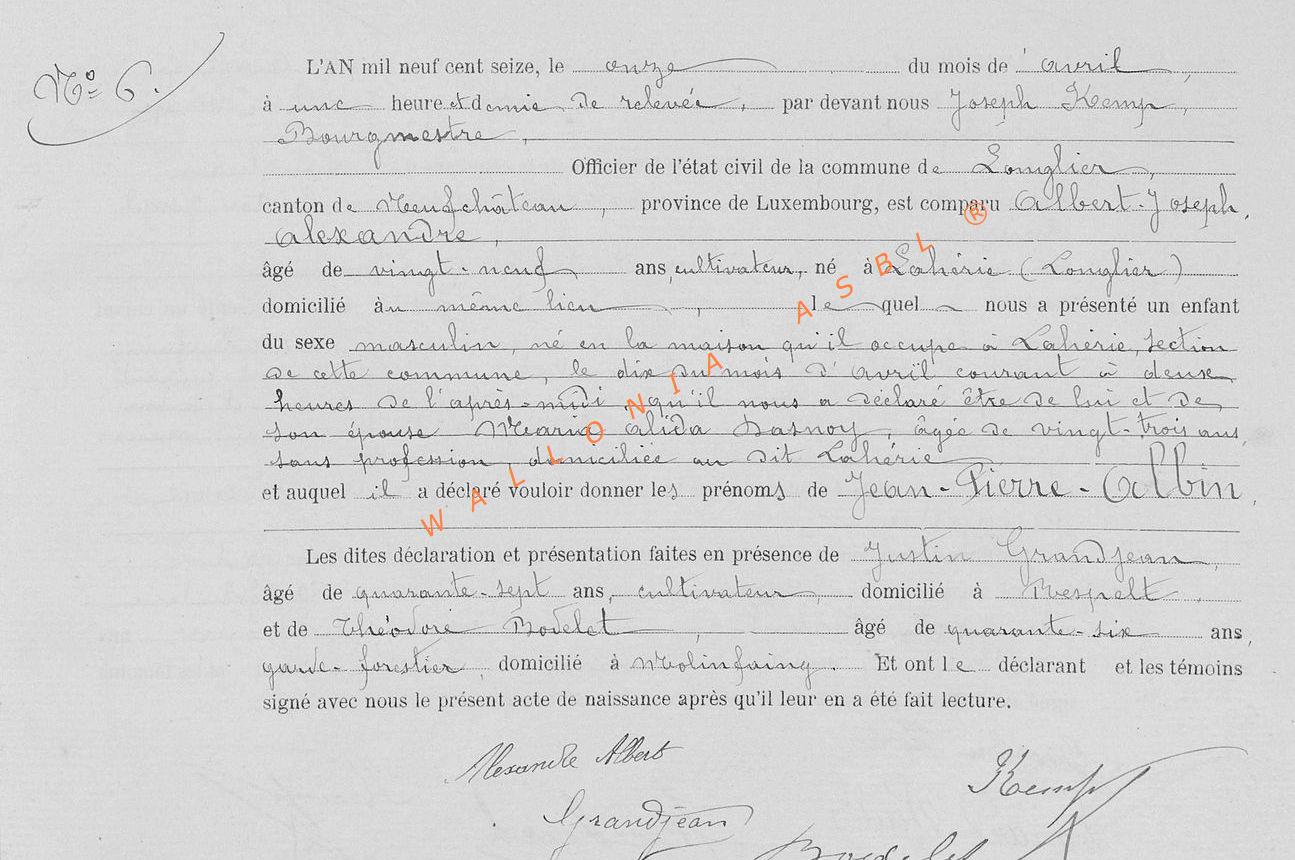 N° 6.
L'AN mil neuf cent seize, le onze du mois de avril,
à une heure et demie de relevée, par devant nous Joseph Kemp,
Bourgmestre,
Officier de l'état civil de la commune de Longlier,
canton de Neufchâteau, province de Luxembourg, est comparu Albert-Joseph
Alexandre,
âgé de vingt-neuf ans, cultivateur, né à Lahérie (Longlier)
domicilié au même lieu, lequel nous a présenté un enfant
du sexe masculin, né en la maison qu'il occupe à Lahérie, section
de cette commune, le dix du mois d'avril courant à deux
heures de l'après-midi, qu'il nous a déclaré être de lui et de
son épouse Maria Alida Dasnoy, âgée de vingt-trois ans,
sans profession, domiciliée au dit Lahérie
et auquel il a déclaré vouloir donner les prénoms de Jean-Pierre-Albin,
Les dites déclaration et présentation faites en présence de Justin Grandjean,
âgé de quarante-sept ans, cultivateur, domicilié à Respelt,
et de Théodore Bodelet, âgé de quarante-six ans,
garde-forestier, domicilié à Molinfaing. Et ont le déclarant et les témoins
signé avec nous le présent acte de naissance après qu'il leur en a été fait lecture.
Alexandre Albert
Kemp
Grandjean
Bodelet
WALLONIA ASBL ®